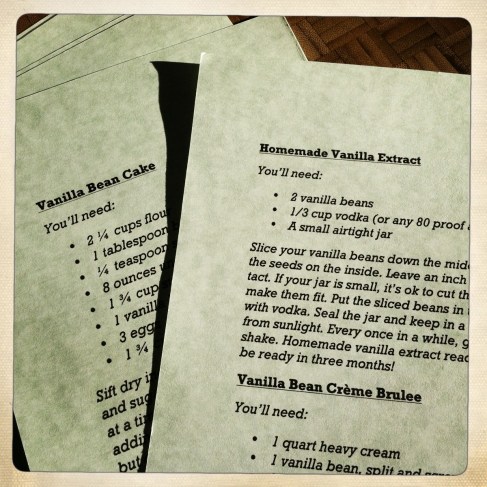 Vanilla Bean Cake
You'll need:
• 2 ¼ cups flou
• 1 tablespoon
• ¼ teaspoon
• 8 ounces
• 1 ¾ cup
• 1 vanill
• 3 egg
• 1 ¾
Sift dry i
and sug
at a tim
addi
but
Homemade Vanilla Extract
You'll need:
• 2 vanilla beans
• 1/3 cup vodka (or any 80 proof
• A small airtight jar
Slice your vanilla beans down the mid
the seeds on the inside. Leave an inch
tact. If your jar is small, it's ok to cut th
make them fit. Put the sliced beans in
with vodka. Seal the jar and keep in a
from sunlight. Every once in a while, g
shake. Homemade vanilla extract read
be ready in three months!
Vanilla Bean Crème Brulee
You'll need:
• 1 quart heavy cream
• 1 vanilla bean, split and